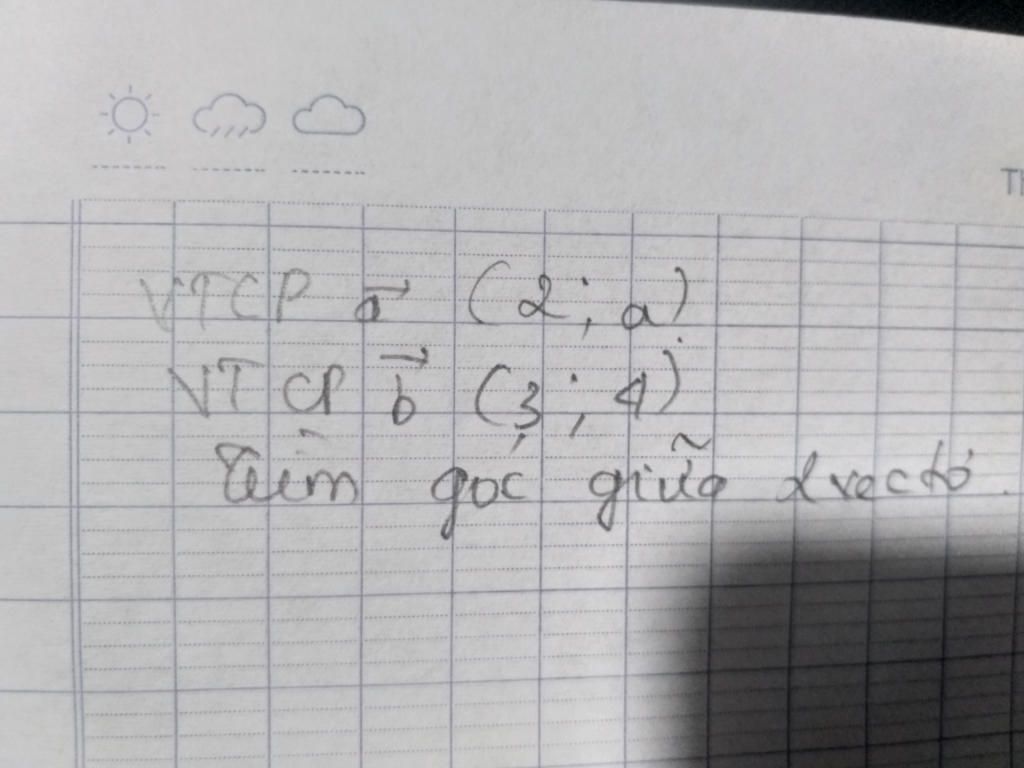 Th
VTCP a⃗ (2; a)
VTCP b⃗ (3; 4)
Tìm góc giữa 2 vectơ.